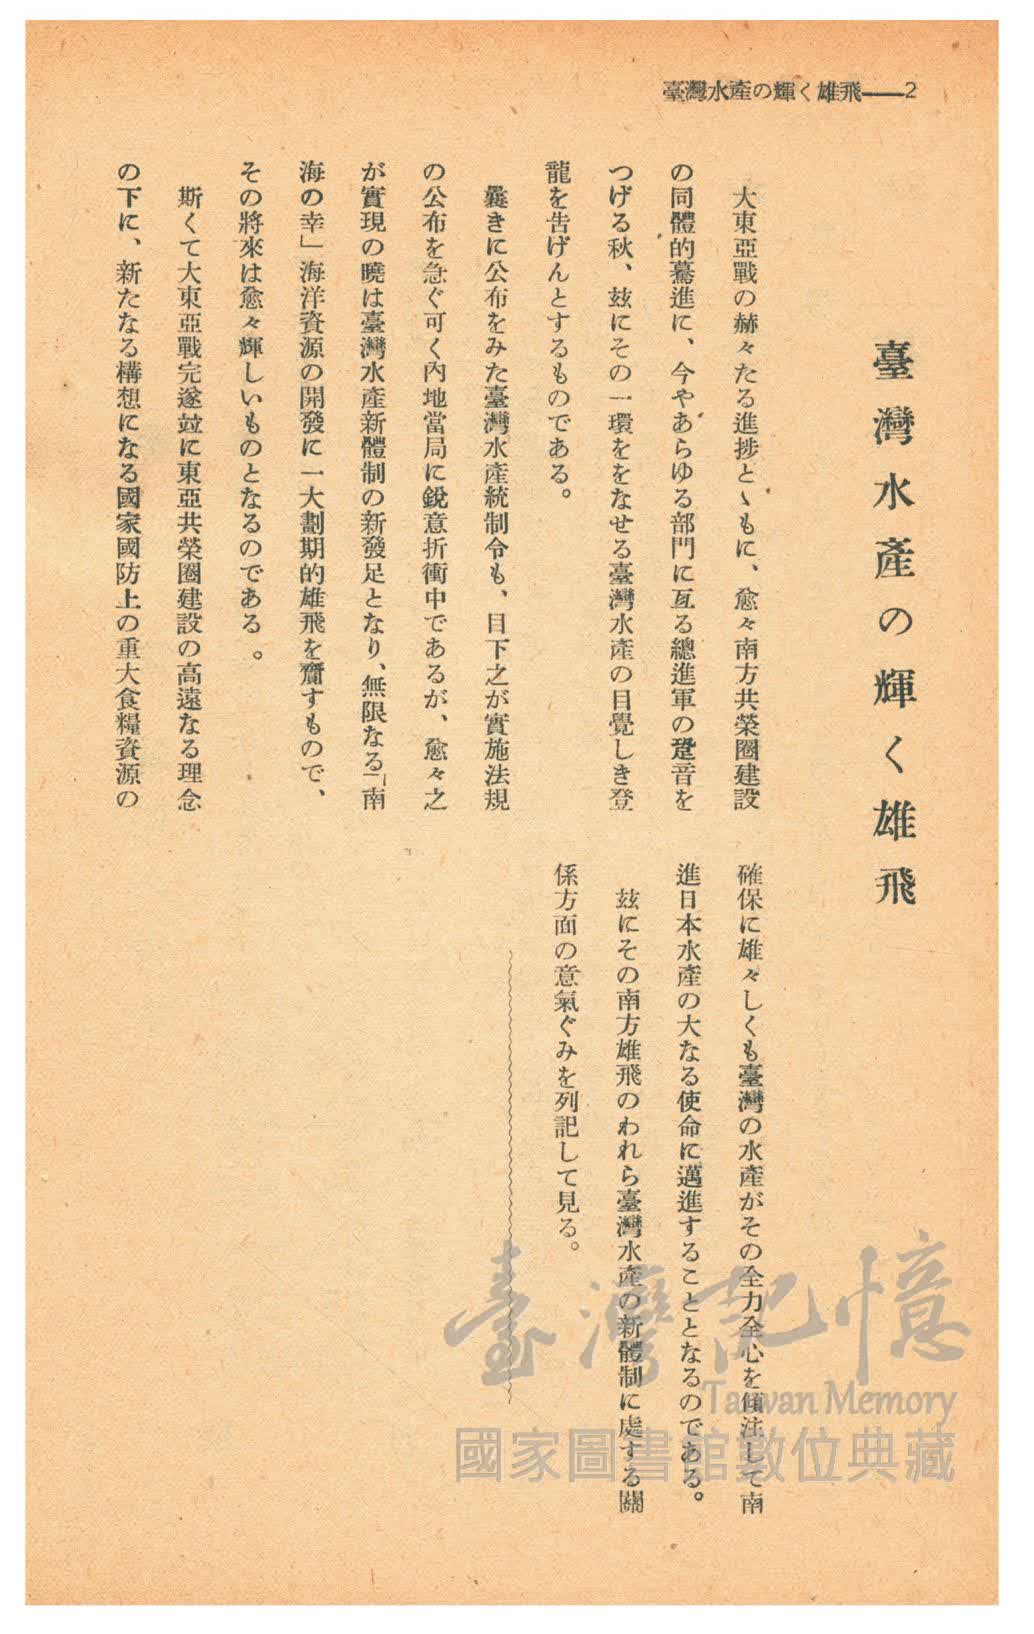 臺灣水產の輝く雄飛——2
臺灣水產の輝く雄飛
大東亞戰の赫々たる進捗とゝもに、愈々南方共榮圈建設
の同體的驀進に、今やあらゆる部門に亙る總進軍の跫音を
つげる秋、玆にその一環ををなせる臺灣水產の目覺しき登
龍を吿げんとするものである。
曩きに公布をみた臺灣水產統制令も、目下之が實施法規
の公布を急ぐ可く內地當局に銳意折衝中であるが、愈々之
が實現の曉は臺灣水產新體制の新發足となり、無限なる「南
海の幸」海洋資源の開發に一大劃期的雄飛を齎すもので、
その將來は愈々輝しいものとなるのである。
斯くて大東亞戰完遂竝に東亞共榮圈建設の高遠なる理念
の下に、新たなる構想になる國家國防上の重大食糧資源の
確保に雄々しくも臺灣の水產がその全力全心を傾注して南
進日本水產の大なる使命に邁進することとなるのである。
玆にその南方雄飛のわれら臺灣水產の新體制に處する關
係方面の意氣ぐみを列記して見る。
臺灣記憶
Taiwan Memory
國家圖書館數位典藏